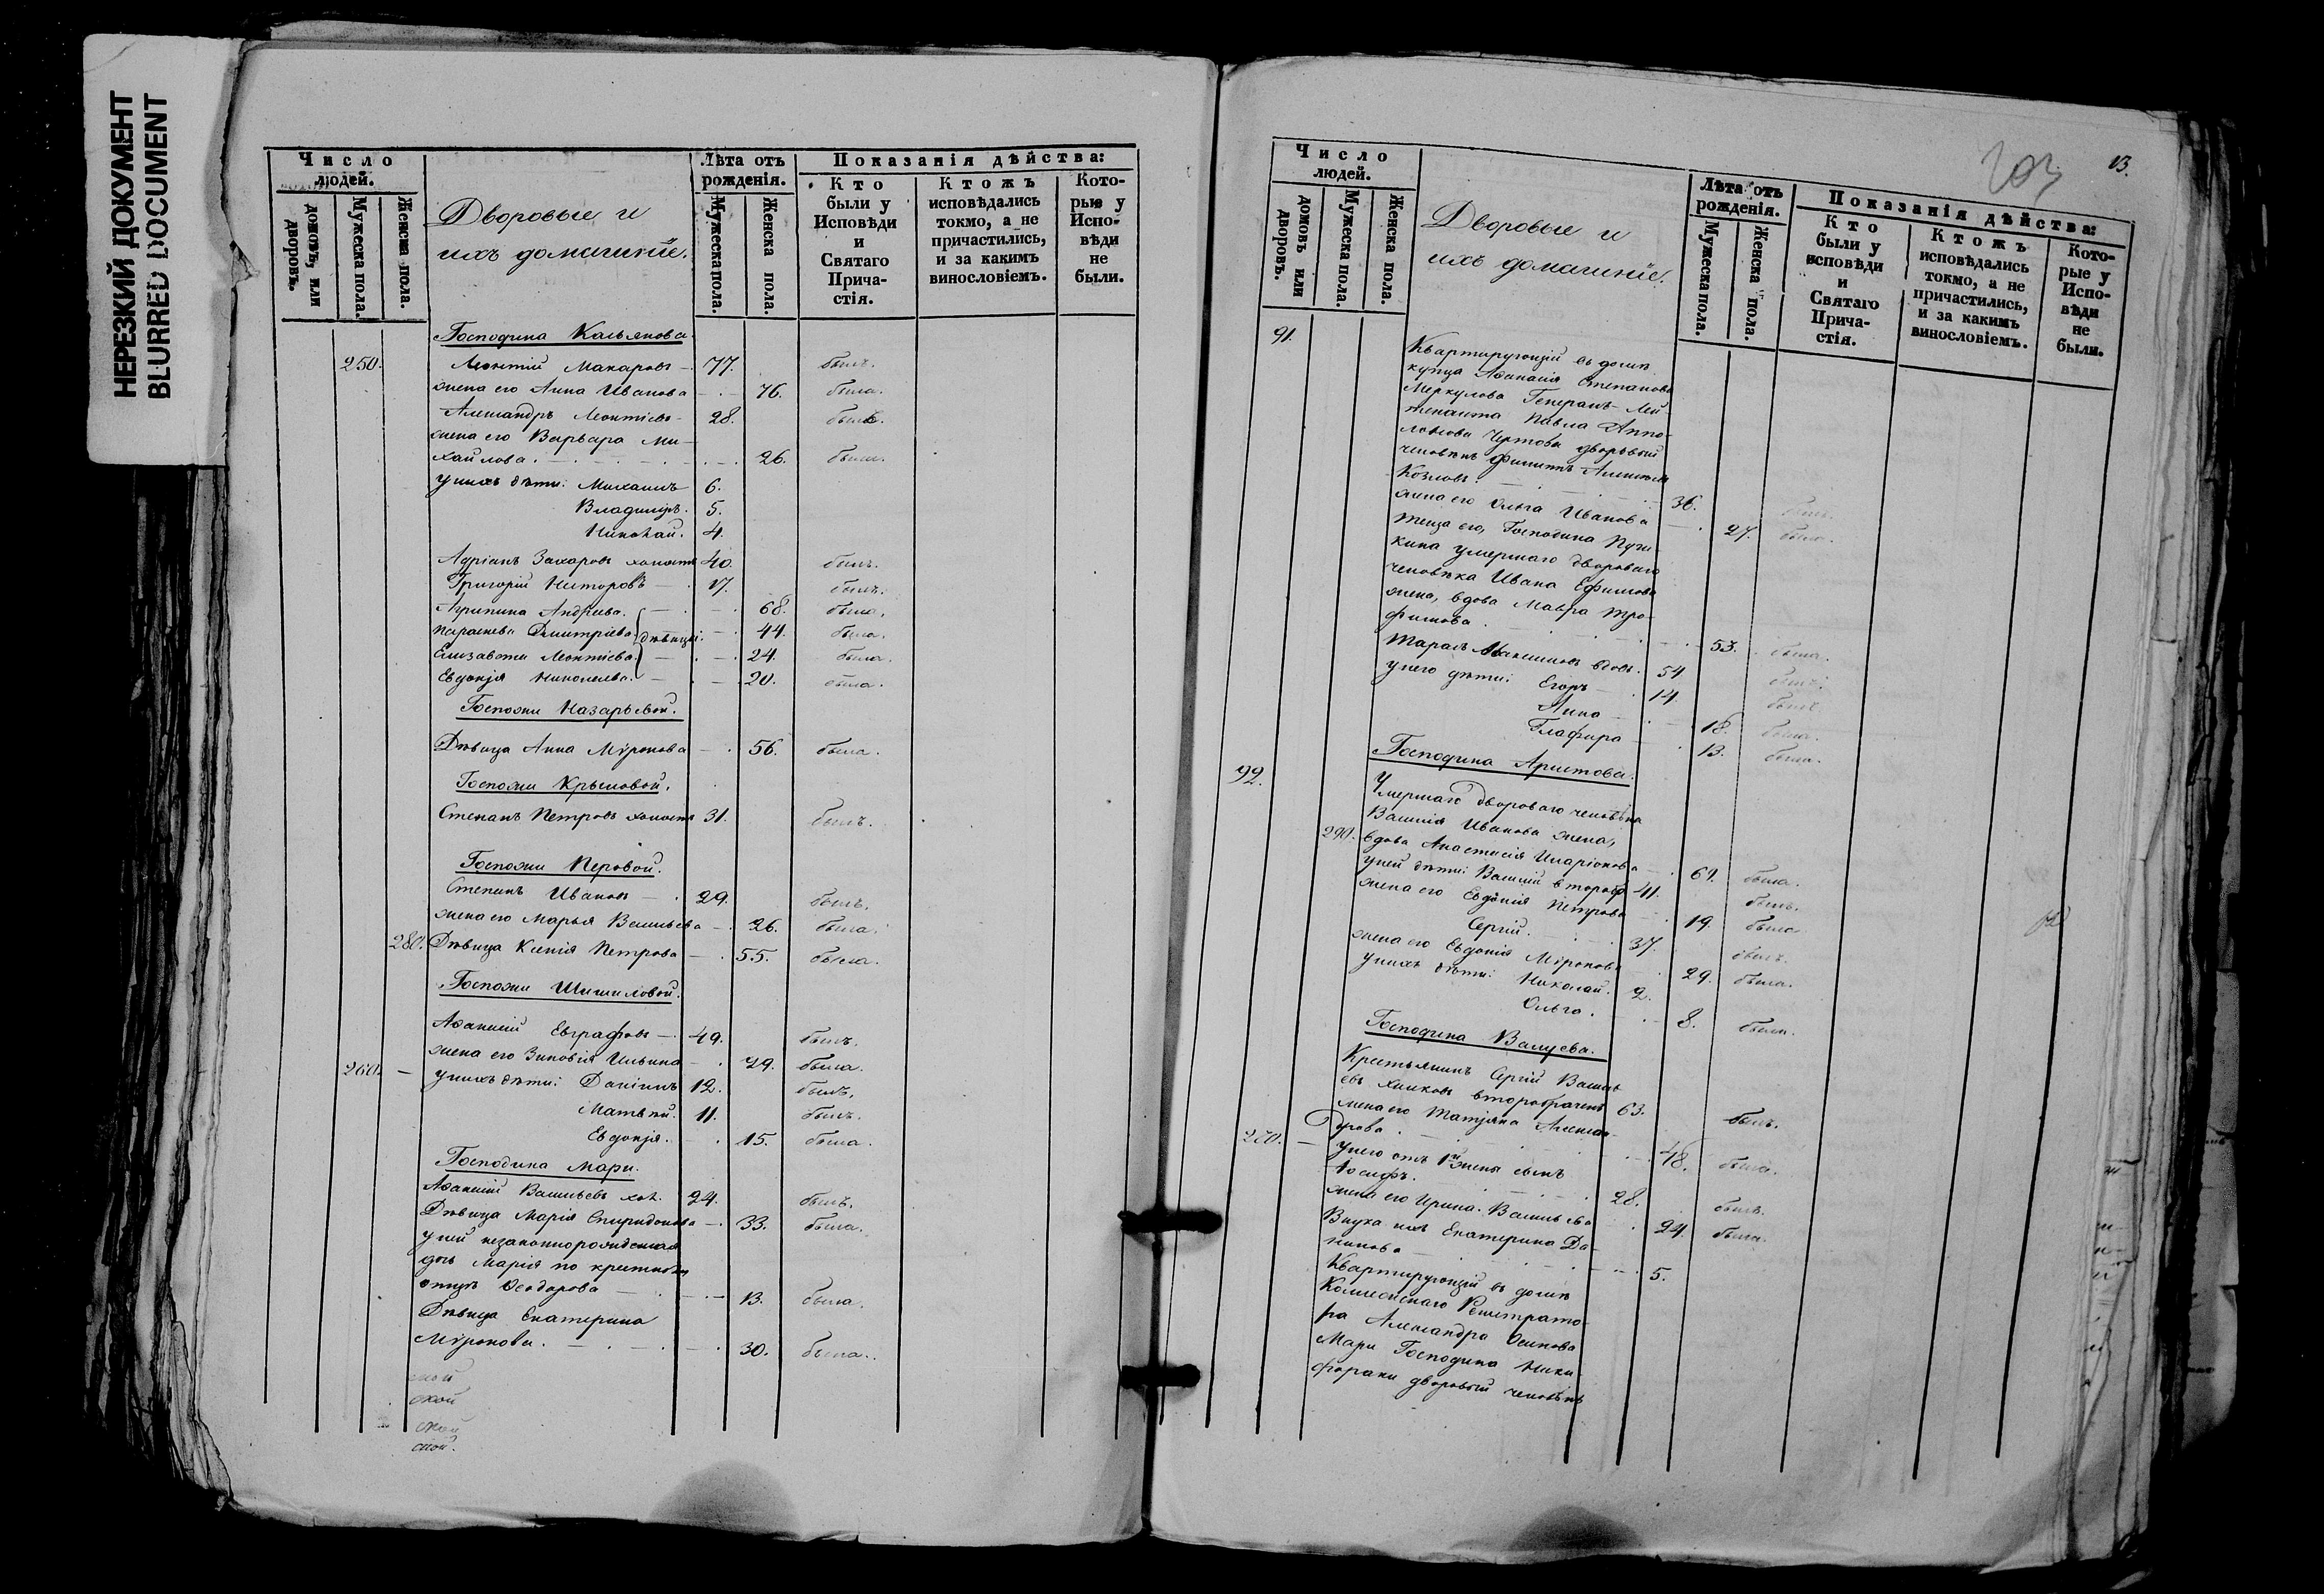 НЕРЕЗКИЙ ДОКУМЕНТ
BLURRED DOCUMENT
Число людей.
домовъ, или дворовъ.
Мужеска пола.
Женска пола.
Дворовые и
ихъ домашніе.
Лѣта отъ рожденія.
Мужеска пола.
Женска пола.
Показанія дѣйства:
Кто были у Исповѣди и Святаго Прича-стія.
Ктожъ исповѣдались токмо, а не причастились, и за какимъ винословіемъ.
Кото-рые у Испо-вѣди не были.
Господина Кальянова.
250. Леонтій Макаровъ — 77. былъ.
жена его Анна Иванова — 76. была.
Александръ Леонтіевъ — 28. былъ.
жена его Варвара Ми-
хайлова. — 26. была.
у нихъ дѣти: Михаилъ 6.
Владиміръ. 5.
Николай. 4.
Адріанъ Захаровъ холостъ 40. былъ.
Григорій Несторовъ — 17. былъ.
Агрипина Андреева. — 68. была.
Параскева Дмитріева. дѣвицы. 44. была.
Елизавета Леонтіева. — 24. была.
Евдокія Николаева. — 20. была.
Госпожи Назарьевой.
Дѣвица Анна Мѵронова — 56. была.
Госпожи Крымовой.
Степанъ Петровъ холостъ 31. былъ.
Госпожи Перовой.
Степанъ Ивановъ — 29. былъ.
жена его Марья Васильева — 26. была.
280. Дѣвица Ксенія Петрова — 55. была.
Госпожи Шишиловой.
Аѳанасій Евграфовъ — 49. былъ.
жена его Зиновія Ильина — 29. была.
260. — у нихъ дѣти: Даніилъ 12. былъ.
Матвѣй. 11. былъ.
Евдокія. 15. была.
Господина Мари.
Аѳанасій Васильевъ хол. 24. былъ.
Дѣвица Марія Спиридонова — 33. была.
у ней незаконнорожденная
дочь Марія по крестному
отцу Ѳеодорова — 13. была.
Дѣвица Екатерина
Мѵронова. — 30. была.
13.
Число людей.
домовъ или дворовъ.
Мужеска пола.
Женска пола.
Дворовые и
ихъ домашніе.
Лѣта отъ рожденія.
Мужеска пола.
Женска пола.
Показанія дѣйства:
Кто были у исповѣди и Святаго Прича-стія.
Ктожъ исповѣдались токмо, а не причастились, и за какимъ винословіемъ.
Кото-рые у Испо-вѣди не были.
91. Квартирующій въ домѣ
купца Аѳанасія Степанова
Меркулова Генералъ-Лей-
тенанта Павла Аппо-
лонова Чертова дворовый
человѣкъ Филиппъ Алексѣевъ
Козловъ. 36. былъ.
жена его Ольга Иванова — 27. была.
теща его, Господина
умершаго двороваго
человѣка Ивана Ефимова
жена, вдова Мавра Тро-
фимова. 53. была.
Тарасъ Максимовъ вдовъ. 54 былъ.
у него дѣти: Егоръ — 14. былъ.
Анна — 18. была.
Глафира — 13. была.
Господина Аристова.
92. Умершаго двороваго человѣка
Василія Иванова жена,
вдова Анастасія Иларіонова — 61. была.
у ней дѣти: Василій второбр. 41. былъ.
жена его Евдокія Петрова — 19. была.
Сергій. 37. былъ.
жена его Евдокія Мѵронова — 29. была.
у нихъ дѣти: Николай. 2.
Ольга. 8. была.
Господина Валуева.
Крестьянинъ Сергій Василь-
евъ второбрачный 63. былъ.
жена его Татіяна Алексан-
дрова. 48. была.
270. — у него отъ 1й жены сынъ
Іосифъ. 28. былъ.
жена его Ирина Васильева 24. была.
Внука ихъ Екатерина Да-
нилова — 5.
Квартирующій въ домѣ
Коллежскаго Регистрато-
ра Александра Осипова
Мари Господина Ники-
фораки дворовый человѣкъ